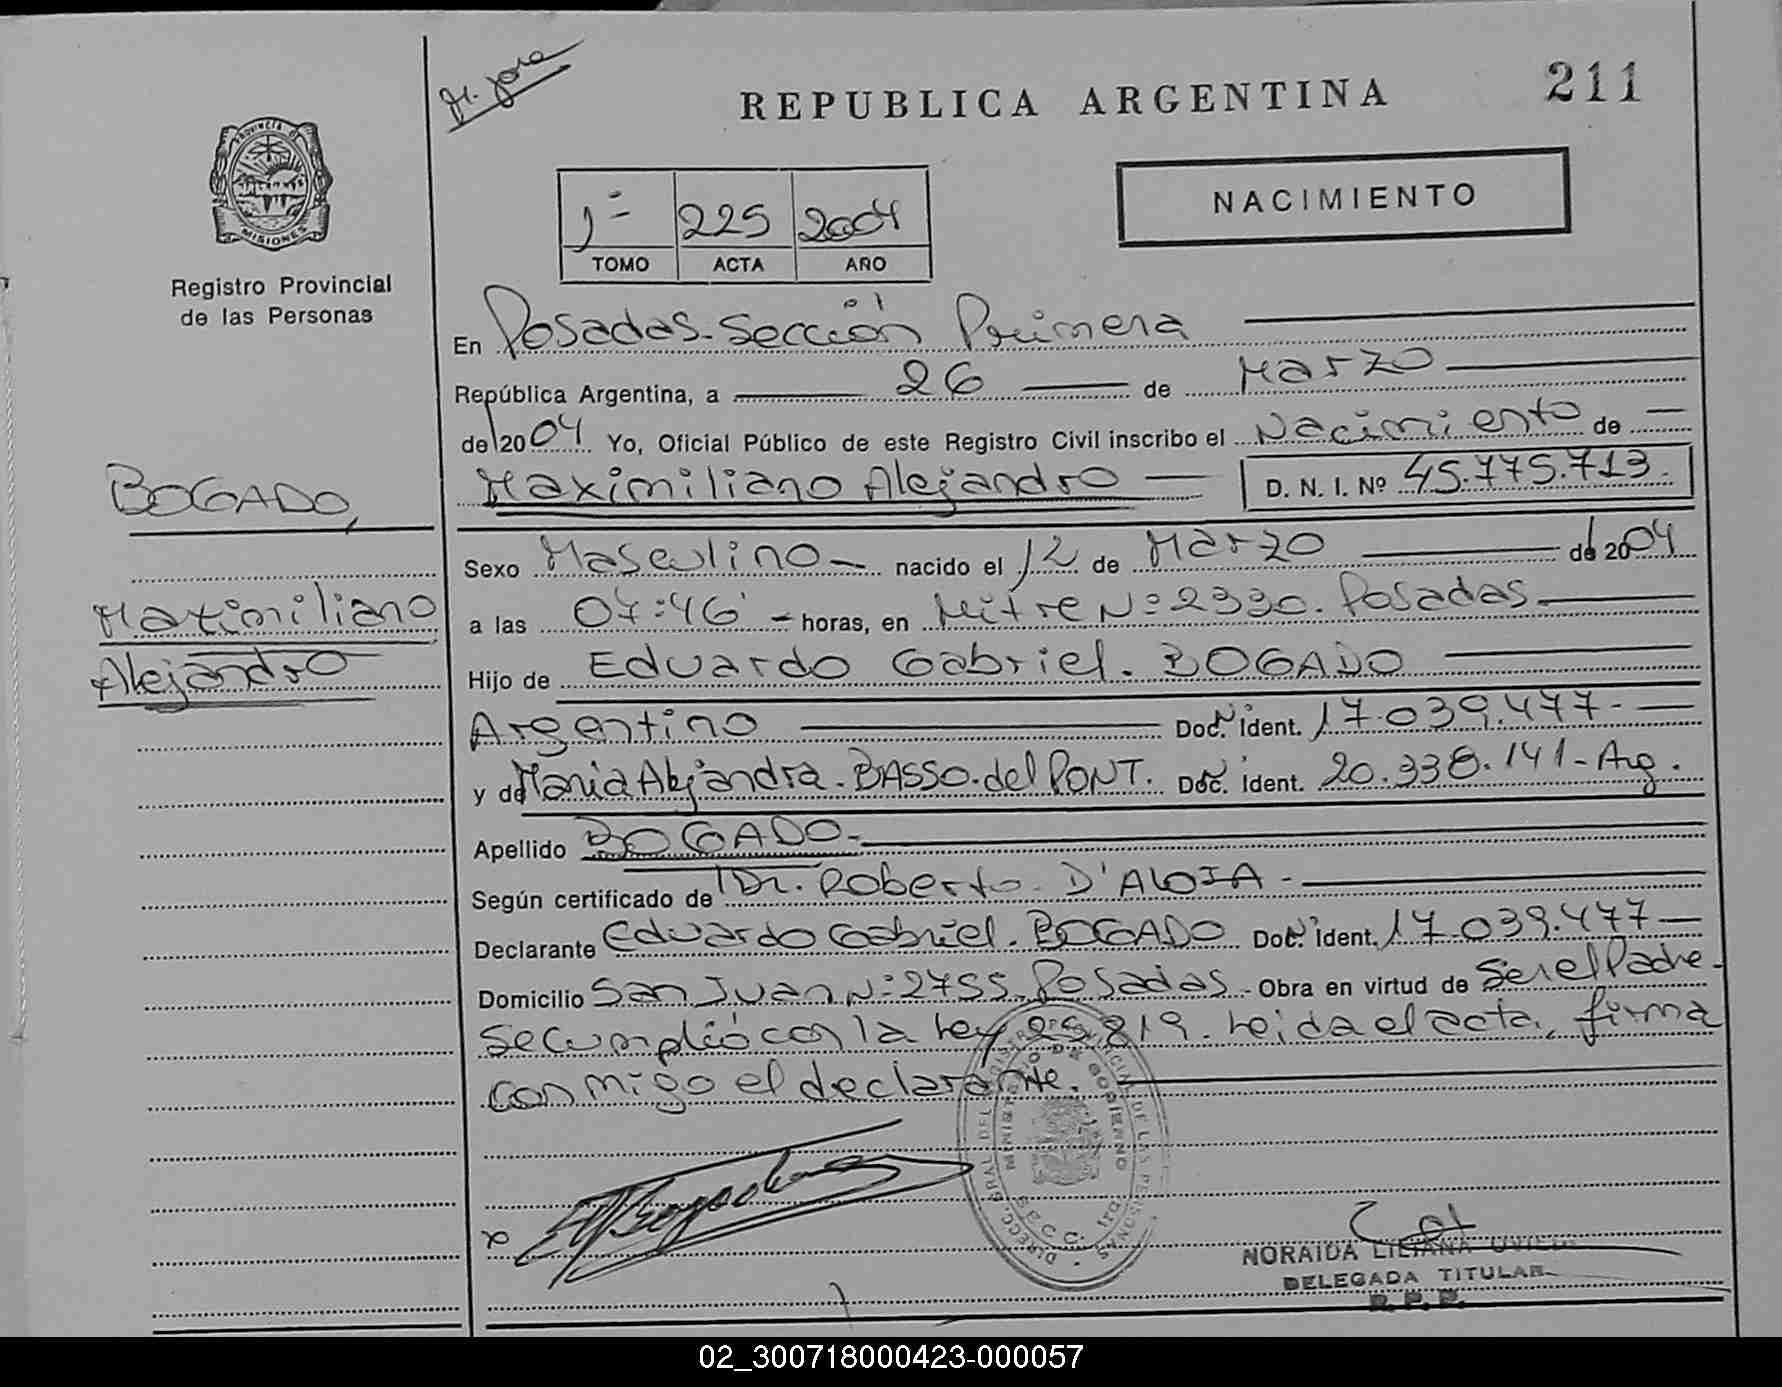 H. Jora
REPUBLICA ARGENTINA
211
PROVINCIA DE
MISIONES
Registro Provincial
de las Personas
1º 225 2004
TOMO ACTA AÑO
NACIMIENTO
En Posadas-Sección Primera
República Argentina, a 26 de Marzo
de 2004 Yo, Oficial Público de este Registro Civil inscribo el Nacimiento de
Maximiliano Alejandro D. N. I. Nº 45.775.713.
BOGADO,
Maximiliano
Alejandro
Sexo Masculino nacido el 12 de Marzo de 2004
a las 07:46 horas, en Mitre Nº 2330. Posadas
Hijo de Eduardo Gabriel. BOGADO
Argentino Doc. ident. 17.039.477.
y de Maria Alejandra. BASSO. del PONT. Doc. ident. 20.338.141-Arg.
Apellido BOGADO.
Según certificado de Dr. Roberto D'ALOIA.
Declarante Eduardo Gabriel. BOGADO Doc. ident. 17.039.477
Domicilio San Juan Nº 2755. Posadas. Obra en virtud de Ser el Padre.
Se cumplió con la Ley 25.819. Leida el acta, firma
conmigo el declarante.
DIRECC. GRAL DEL REGISTRO PROVINCIAL DE LAS PERSONAS
MINISTERIO DE GOBIERNO
SECC. 1ra
NORAIDA LILIANA
DELEGADA TITULAR
R. P. P.
02_300718000423-000057